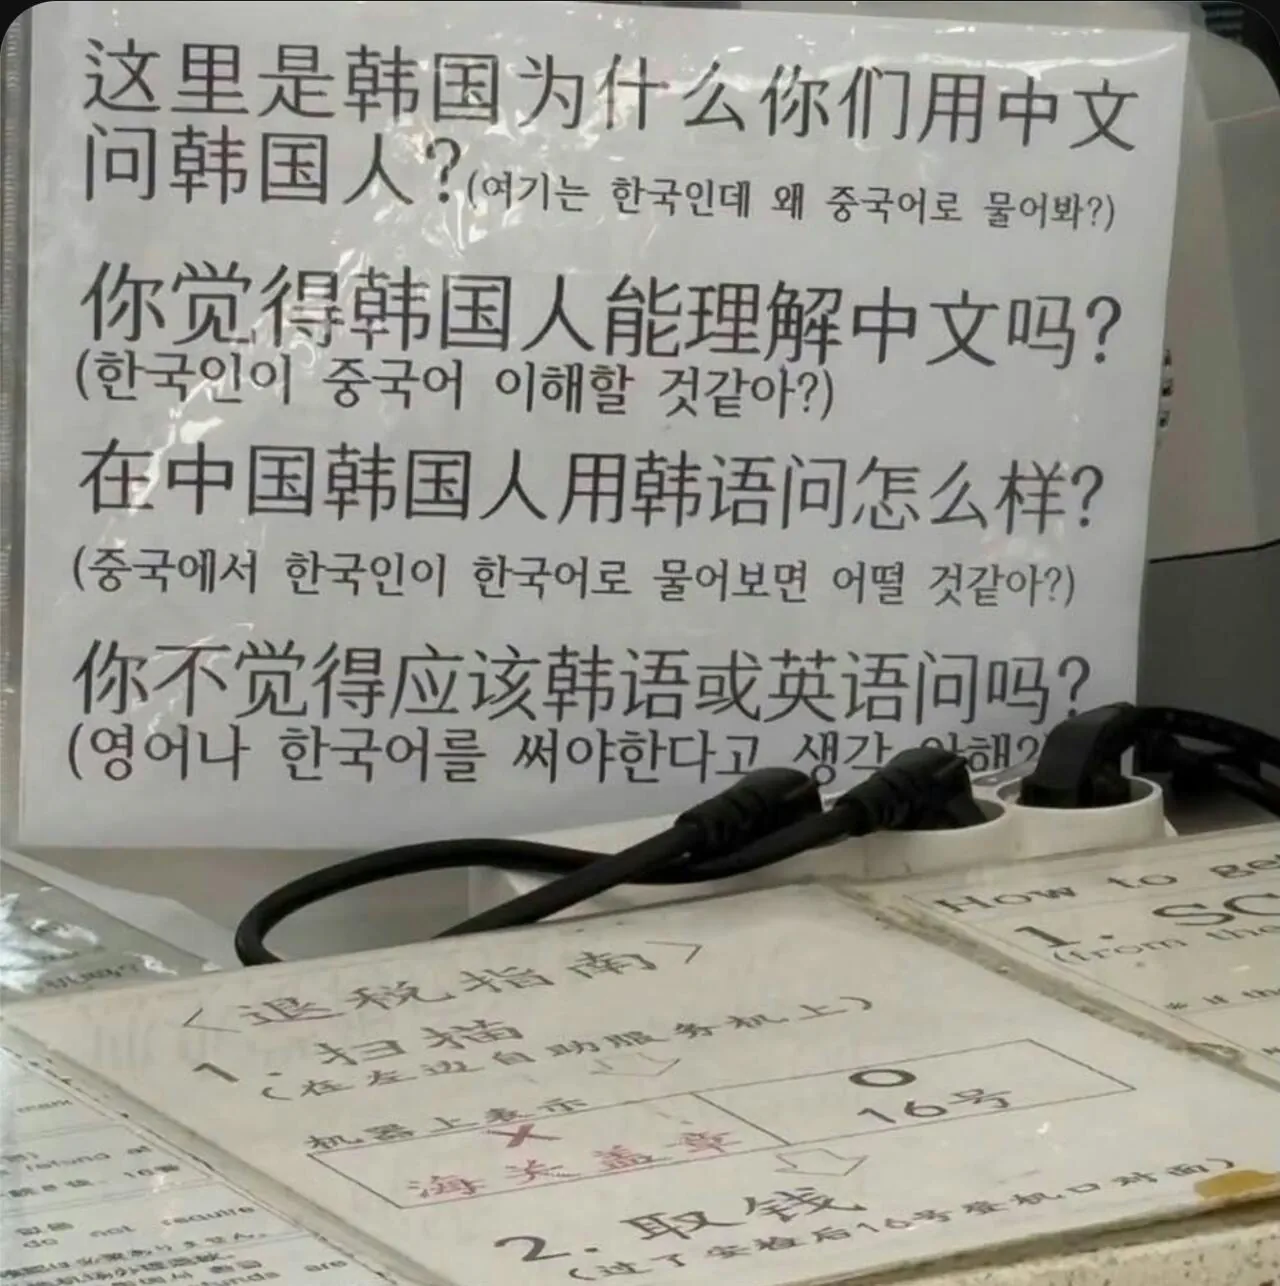 这里是韩国为什么你们用中文
问韩国人?(여기는 한국인데 왜 중국어로 물어봐?)
你觉得韩国人能理解中文吗?
(한국인이 중국어 이해할 것같아?)
在中国韩国人用韩语问怎么样?
(중국에서 한국인이 한국어로 물어보면 어떨 것같아?)
你不觉得应该韩语或英语问吗?
(영어나 한국어를 써야한다고 생각
<退税指南>
1. 扫描
(在左边自助服务机上)
机器上表示
X
O
海关盖章
16号
2. 取钱
(过了安检后16号登机口对面)
How to
1.
(from
* if
refund
do not require
are